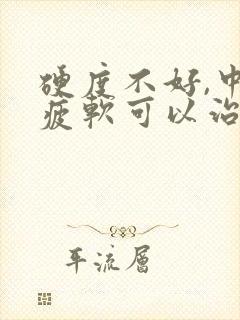 硬度不好,中
疲軟可以治
平流層